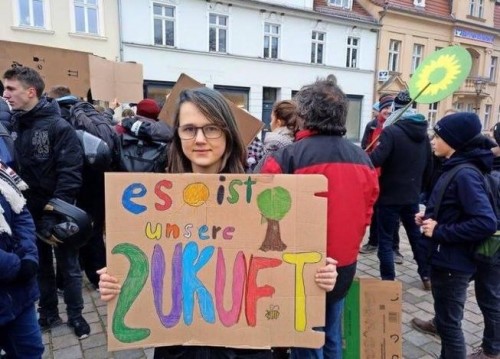 es ist
unsere
ZUKUFT